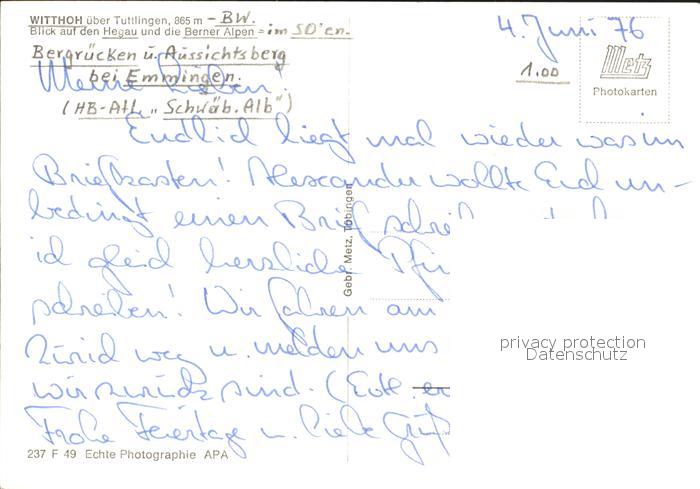 WITTHOH über Tuttlingen, 865 m - BW.
Blick auf den Hegau und die Berner Alpen = im SO'en.
Bergrücken u. Aussichtsberg
bei Emmingen.
(HB-Atl. "Schwäb. Alb")
4. Juni 76
1.00
Metz
Photokarten
Meine Lieben!
Endlich liegt mal wieder was im
Briefkasten! Alexander wollte Euch un-
bedingt einen Brief
ich gleich herzliche
schreiben! Wir fahren am
Zürich weg u. melden uns
wir zurück sind. (Evtl.
Frohe Feiertage u. liebe
Gebr. Metz, Tübingen
privacy protection
Datenschutz
237 F 49 Echte Photographie APA